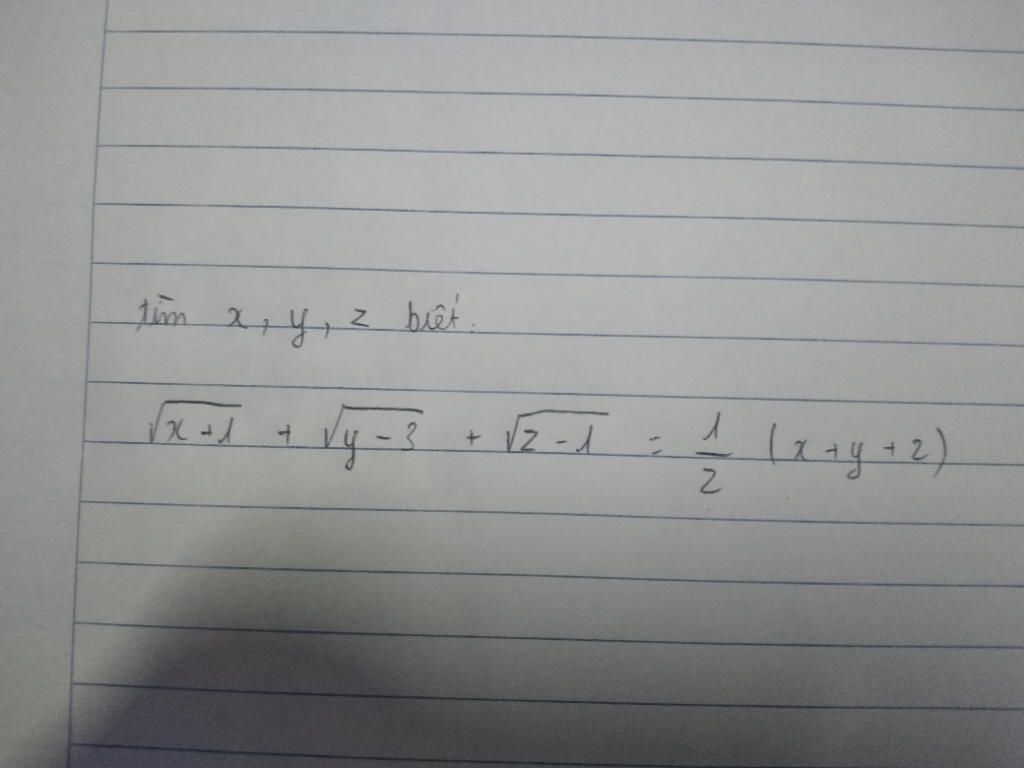 tìm x, y, z biết.
√(x+1) + √(y-3) + √(z-1) = 1/2 (x+y+z)